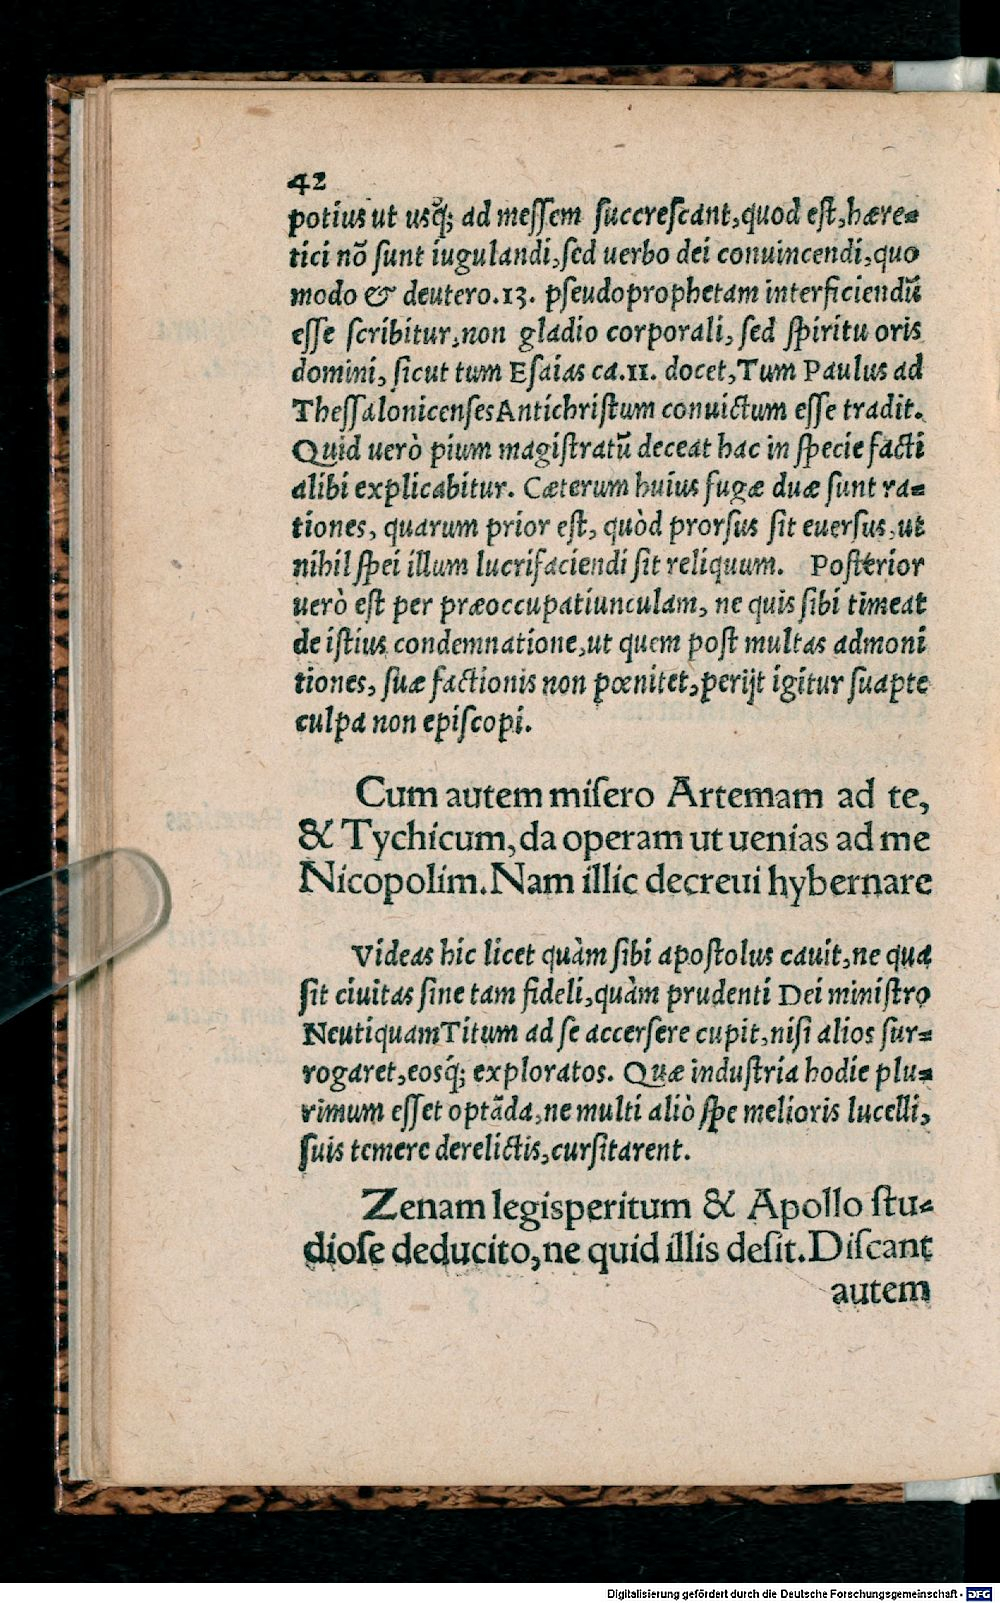 42
potius ut usq́; ad meſſem ſuccreſcant, quod eſt, hære=
tici nō ſunt iugulandi, ſed uerbo dei conuincendi, quo
modo & deutero. 13. pſeudoprophetam interficiendū
eſſe ſcribitur, non gladio corporali, ſed ſpiritu oris
domini, ſicut tum Eſaias ca. 11. docet, Tum Paulus ad
Theſſalonicenſes Antichriſtum conuictum eſſe tradit.
Quid uerò pium magiſtratū deceat hac in ſpecie facti
alibi explicabitur. Cæterum huius fugæ duæ ſunt ra=
tiones, quarum prior eſt, quòd prorſus ſit euerſus, ut
nihil ſpei illum lucrifaciendi ſit reliquum. Poſterior
uerò eſt per præoccupatiunculam, ne quis ſibi timeat
de iſtius condemnatione, ut quem poſt multas admoni
tiones, ſuæ factionis non pœnitet, perijt igitur ſuapte
culpa non epiſcopi.
Cum autem miſero Artemam ad te,
& Tychicum, da operam ut uenias ad me
Nicopolim. Nam illic decreui hybernare
Videas hic licet quàm ſibi apoſtolus cauit, ne qua
ſit ciuitas ſine tam fideli, quàm prudenti Dei miniſtro
Neutiquam Titum ad ſe accerſere cupit, niſi alios ſur=
rogaret, eosq́; exploratos. Quæ induſtria hodie plu=
rimum eſſet optāda, ne multi aliò ſpe melioris lucelli,
ſuis temere derelictis, curſitarent.
Zenam legisperitum & Apollo ſtu=
dioſe deducito, ne quid illis deſit. Diſcant
autem
Digitalisierung gefördert durch die Deutsche Forschungsgemeinschaft - DFG